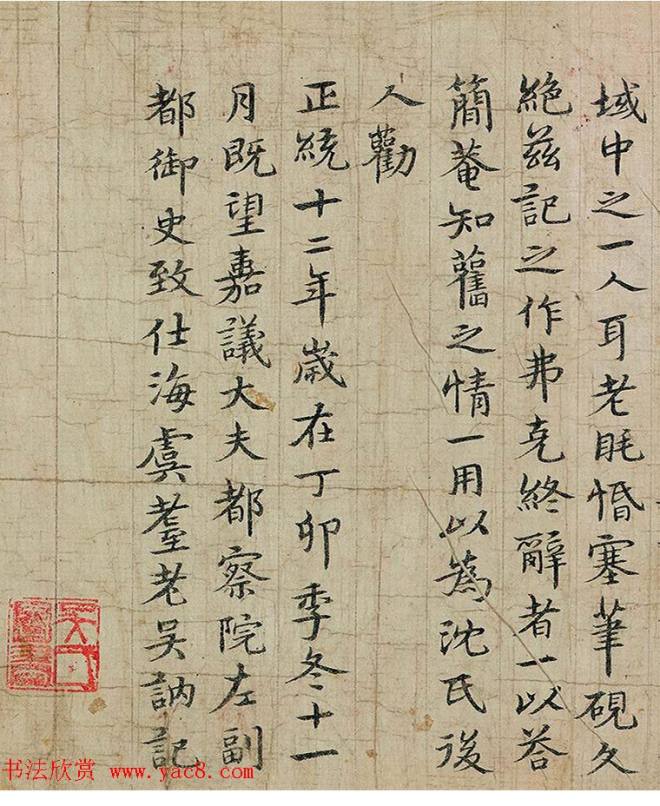 域中之一人耳老眊惛塞筆硯久
絕茲記之作弗克終辭者一以荅
簡菴知舊之情一用以為沈氏後
人勸
正統十二年歲在丁卯季冬十一
月既望嘉議大夫都察院左副
都御史致仕海虞耋老吳訥記
书法欣赏 www.yac8.com